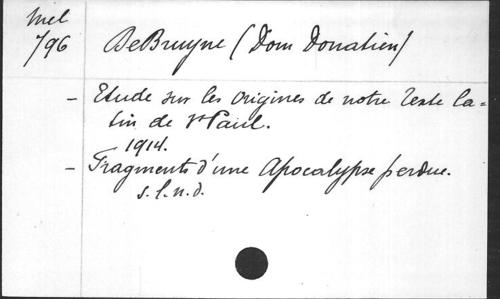 Mel
796
DeBruyne (Dom Donatien)
- Etude sur les origines de notre texte la=
tin de St Paul.
1914.
- Fragments d'une Apocalypse perdue.
s.l.n.d.